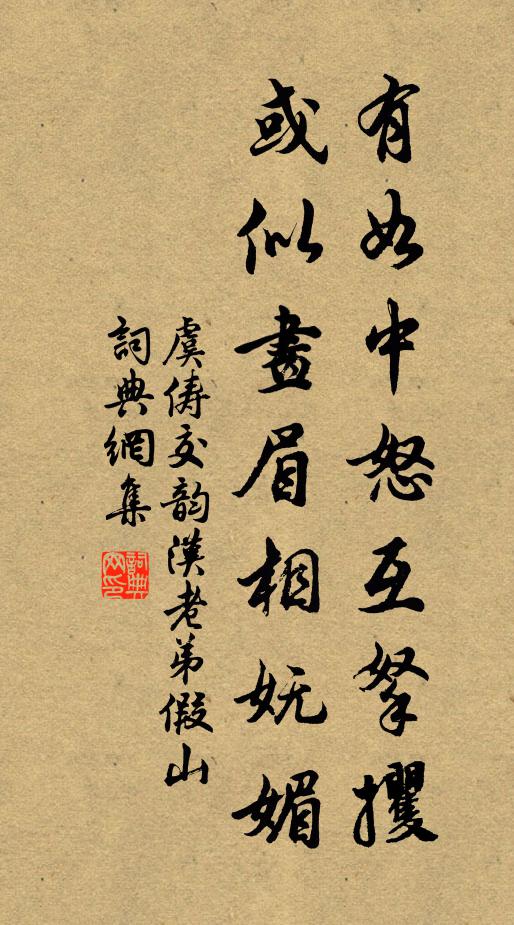 有如中怒互拏攫
或似畫眉相妩媚
虞俦交韵漢老弟假山
詞典網集
詞典
网印